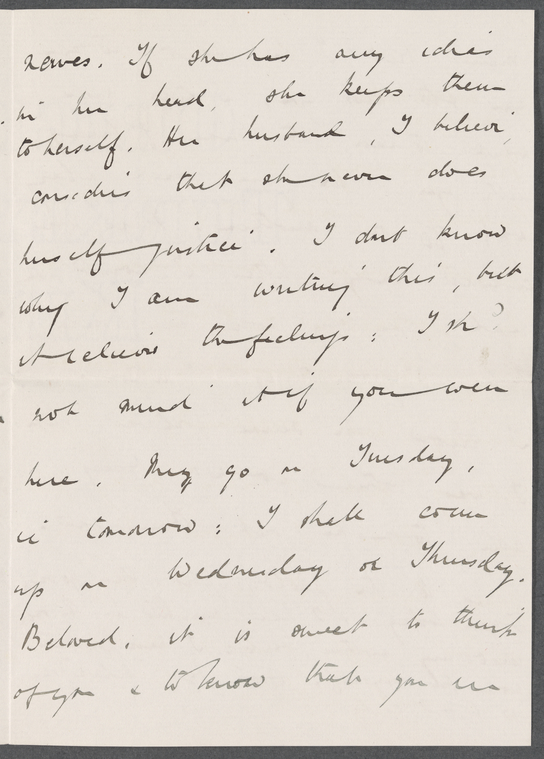 nerves. If she has any ideas
in her head, she keeps them
to herself. Her husband, I believe,
considers that she never does
herself justice. I don't know
why I am writing this, but
it relieves the feelings: I shd
not mind it if you were
here. They go on Tuesday,
ie tomorrow: I shall come
up on Wednesday or Thursday.
Beloved, it is sweet to think
of you & to know that you are